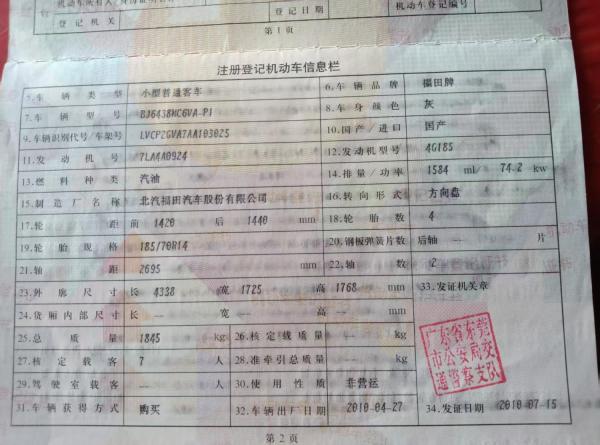 登记机关
登记日期
机动车登记编号
第1页
注册登记机动车信息栏
5.车辆类型 小型普通客车 6.车辆品牌 福田牌
7.车辆型号 BJ6438MC6VA-P1 8.车身颜色 灰
9.车辆识别代号/车架号 LVCP2GVA7AA103025 10.国产/进口 国产
11.发动机号 7LA4A0924 12.发动机型号 4G18S
13.燃料种类 汽油 14.排量/功率 1584 ml/ 74.2 kw
15.制造厂名称 北汽福田汽车股份有限公司 16.转向形式 方向盘
17.轮距 前 1420 后 1440 mm 18.轮胎数 4
19.轮胎规格 185/70R14 20.钢板弹簧片数 后轴 — 片
21.轴距 2695 mm 22.轴数 2
23.外廓尺寸 长 4338 宽 1725 高 1768 mm 33.发证机关章
24.货厢内部尺寸 长 — 宽 — 高 — mm
25.总质量 1845 kg 26.核定载质量 — kg
27.核定载客 7 人 28.准牵引总质量 — kg
广东省东莞
市公安局交
通警察支队
29.驾驶室载客 — 人 30.使用性质 非营运
31.车辆获得方式 购买 32.车辆出厂日期 2010-04-27 34.发证日期 2010-07-15
第2页